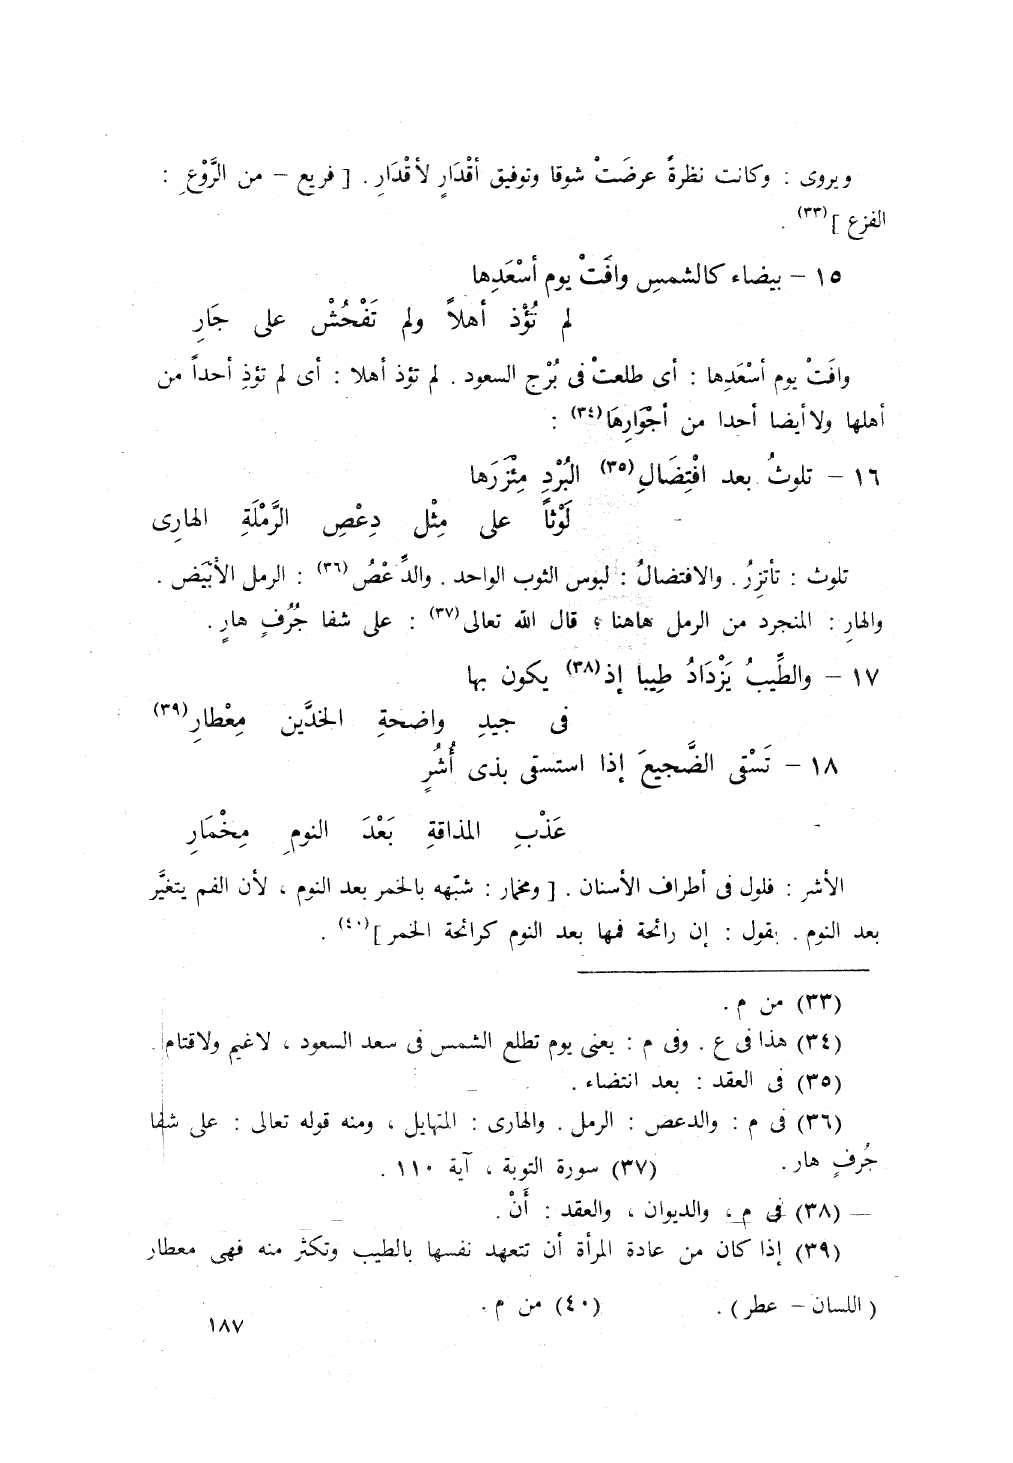 ويروى : وكانت نظرةً عرضَتْ شوقا وتوفيق أقْدَارٍ لأقْدَارِ . [ فريع – من الرَّوْعِ :
الفزع ](٣٣) .
١٥ – بيضاء كالشمسِ وافَتْ يوم أسْعَدِها
لم تُؤْذ أهلاً ولم تَفْحُشْ على جَارِ
وافَتْ يوم أسْعَدِها : أى طلعتْ فى بُرْج السعود . لم تؤذ أهلا : أى لم تؤذِ أحداً من
أهلها ولا أيضا أحدا من أجْوَارِهَا(٣٤) :
١٦ – تلوثُ بعد افْتِضَالِ(٣٥) البُرْدِ مِئْزَرَها
لَوْثاً على مِثْل دِعْصِ الرَّمْلَةِ الهارِى
تلوث : تأتزرُ . والافتضالُ : لبوس الثوب الواحد . والدِّعْصُ(٣٦) : الرمل الأبْيَض .
والهارِ : المنجرد من الرمل هاهنا ؛ قال الله تعالى(٣٧) : على شفا جُرُفٍ هارٍ .
١٧ – والطِّيبُ يَزْدَادُ طِيبا إذ(٣٨) يكون بها
فى جيدِ واضحةِ الخدَّين مِعْطارِ(٣٩)
١٨ – تَسْقى الضَّجيعَ إذا استسقى بذى أُشُرٍ
عَذْبِ المذاقةِ بَعْدَ النومِ مِخْمَارِ
الأشر : فلول فى أطراف الأسنان . [ ومخمار : شبّهه بالخمر بعد النوم ، لأن الفم يتغيَّر
بعد النوم . يقول : إن رائحة فمها بعد النوم كرائحة الخمر ](٤٠) .
(٣٣) من م .
(٣٤) هذا فى ع . وفى م : يعنى يوم تطلع الشمس فى سعد السعود ، لاغيم ولاقتام .
(٣٥) فى العقد : بعد انتضاء .
(٣٦) فى م : والدعص : الرمل . والهارى : المتهايل ، ومنه قوله تعالى : على شفا
جُرفٍ هار . (٣٧) سورة التوبة ، آية ١١٠ .
(٣٨) فى م ، والديوان ، والعقد : أَنْ .
(٣٩) إذا كان من عادة المرأة أن تتعهد نفسها بالطيب وتكثر منه فهى معطار
( اللسان – عطر ) . (٤٠) من م .
١٨٧